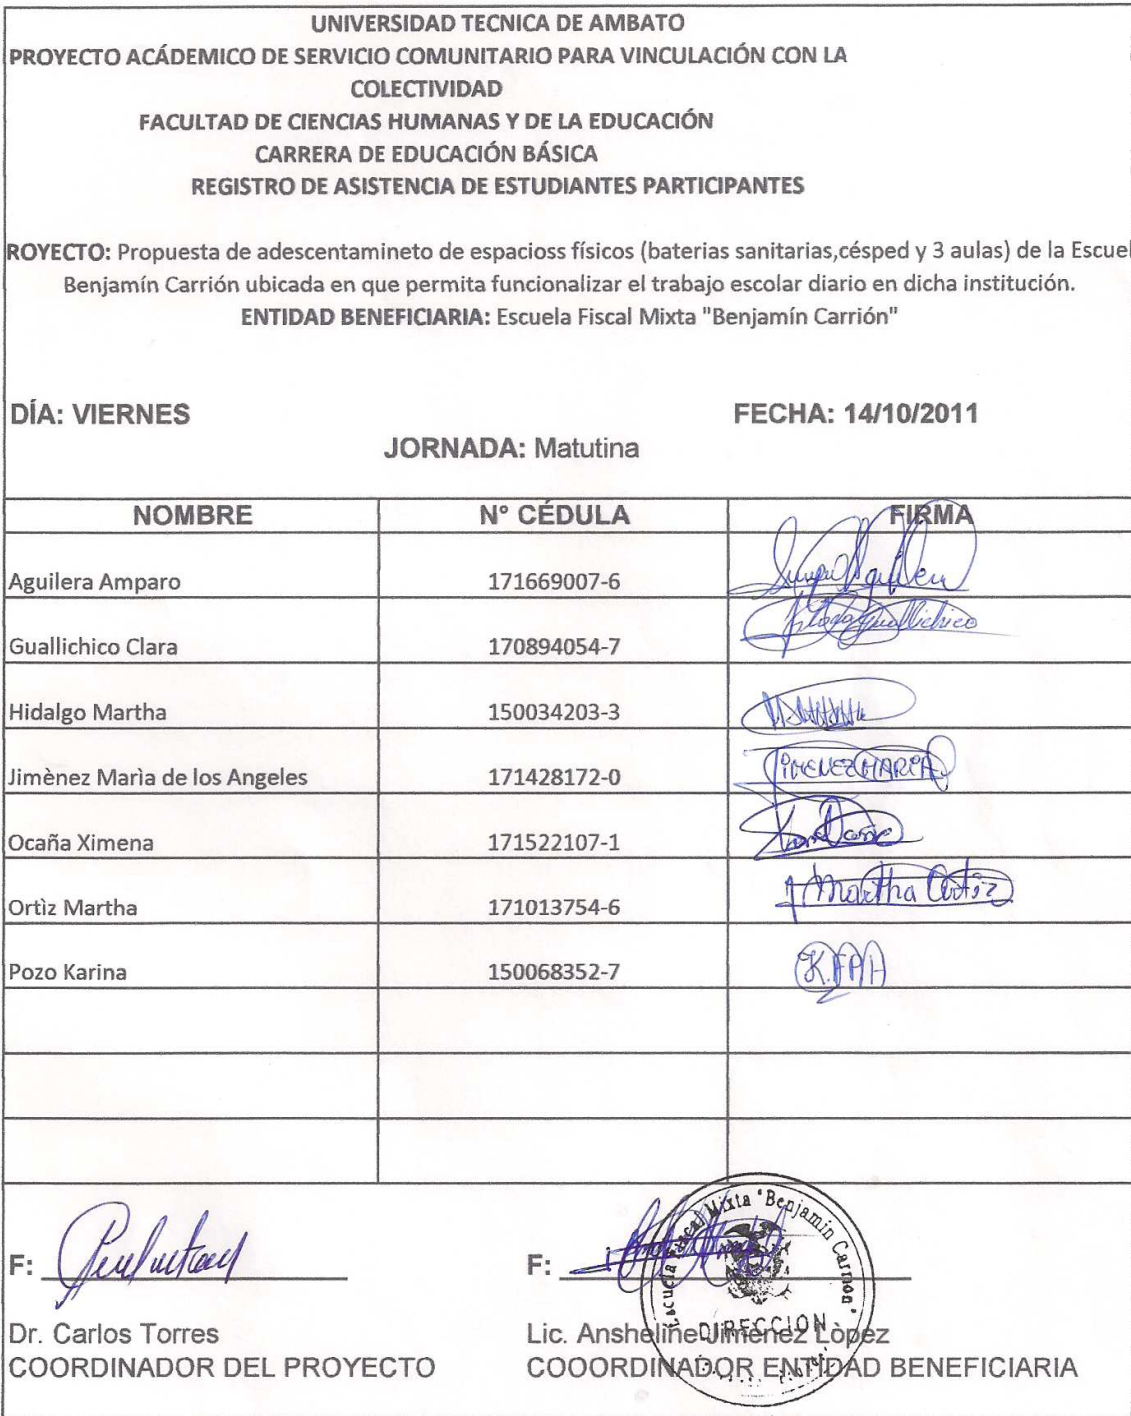 UNIVERSIDAD TECNICA DE AMBATO
PROYECTO ACÁDEMICO DE SERVICIO COMUNITARIO PARA VINCULACIÓN CON LA
COLECTIVIDAD
FACULTAD DE CIENCIAS HUMANAS Y DE LA EDUCACIÓN
CARRERA DE EDUCACIÓN BÁSICA
REGISTRO DE ASISTENCIA DE ESTUDIANTES PARTICIPANTES
ROYECTO: Propuesta de adescentamineto de espacioss físicos (baterias sanitarias,césped y 3 aulas) de la Escuel
Benjamín Carrión ubicada en que permita funcionalizar el trabajo escolar diario en dicha institución.
ENTIDAD BENEFICIARIA: Escuela Fiscal Mixta "Benjamín Carrión"
DÍA: VIERNES FECHA: 14/10/2011
JORNADA: Matutina
NOMBRE N° CÉDULA FIRMA
Aguilera Amparo 171669007-6
Guallichico Clara 170894054-7 Guallichico
Hidalgo Martha 150034203-3
Jimènez Marìa de los Angeles 171428172-0 JIMENEZ MARIA
Ocaña Ximena 171522107-1
Ortìz Martha 171013754-6 Martha Ortiz
Pozo Karina 150068352-7 K.FPA
F: F:
Escuela Fiscal Mixta "Benjamín Carrion"
DIRECCION
Dr. Carlos Torres Lic. Ansheline Jimènez Lòpez
COORDINADOR DEL PROYECTO COOORDINADOR ENTIDAD BENEFICIARIA